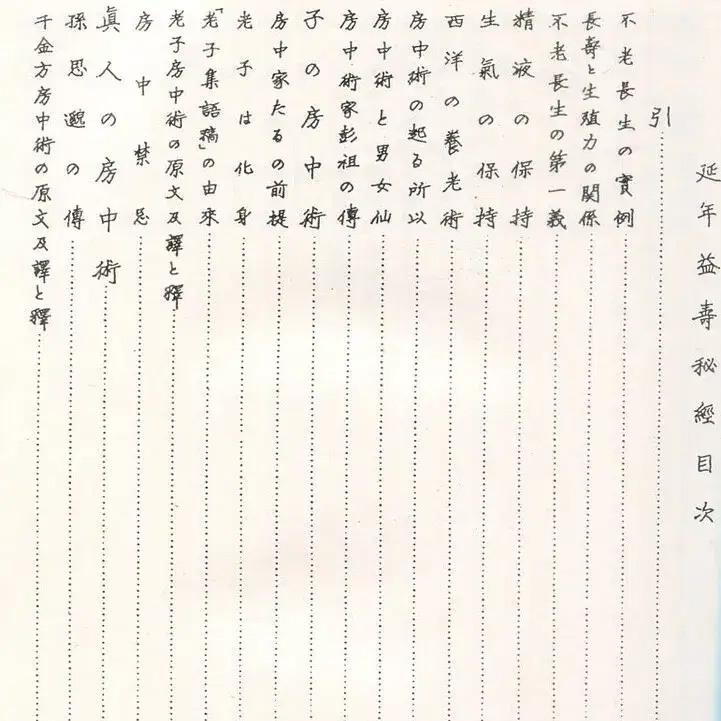 延年益壽秘經目次
引
不老長生の實例
長壽と生殖力の関係
不老長生の第一義
精液の保持
生氣の保持
西洋の養老術
房中術の起る所以
房中術と男女仙
房中術家彭祖の傳
子の房中術
房中家たるの前提
老子は化身
「老子集語稿」の由來
老子房中術の原文及譯と釋
房中禁忌
眞人の房中術
孫思邈の傳
千金方房中術の原文及譯と釋